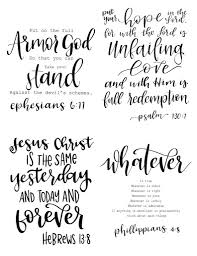 Put on the full
ARMOR of GOD
So that you can
Take your
stand
Against the devil's schemes.
ephesians 6:11
put your hope in the Lord,
for with the Lord is
unfailing
love
and with Him is
full redemption
psalm 130:7
JESUS CHRIST
IS THE SAME
yesterday
AND TODAY AND
forever
HEBREWS 13:8
whatever
is true
Whatever is noble
Whatever is right
Whatever is pure
Whatever is lovely
Whatever is admirable
if anything is excellent or praiseworthy
think about such things
phillippians 4:8